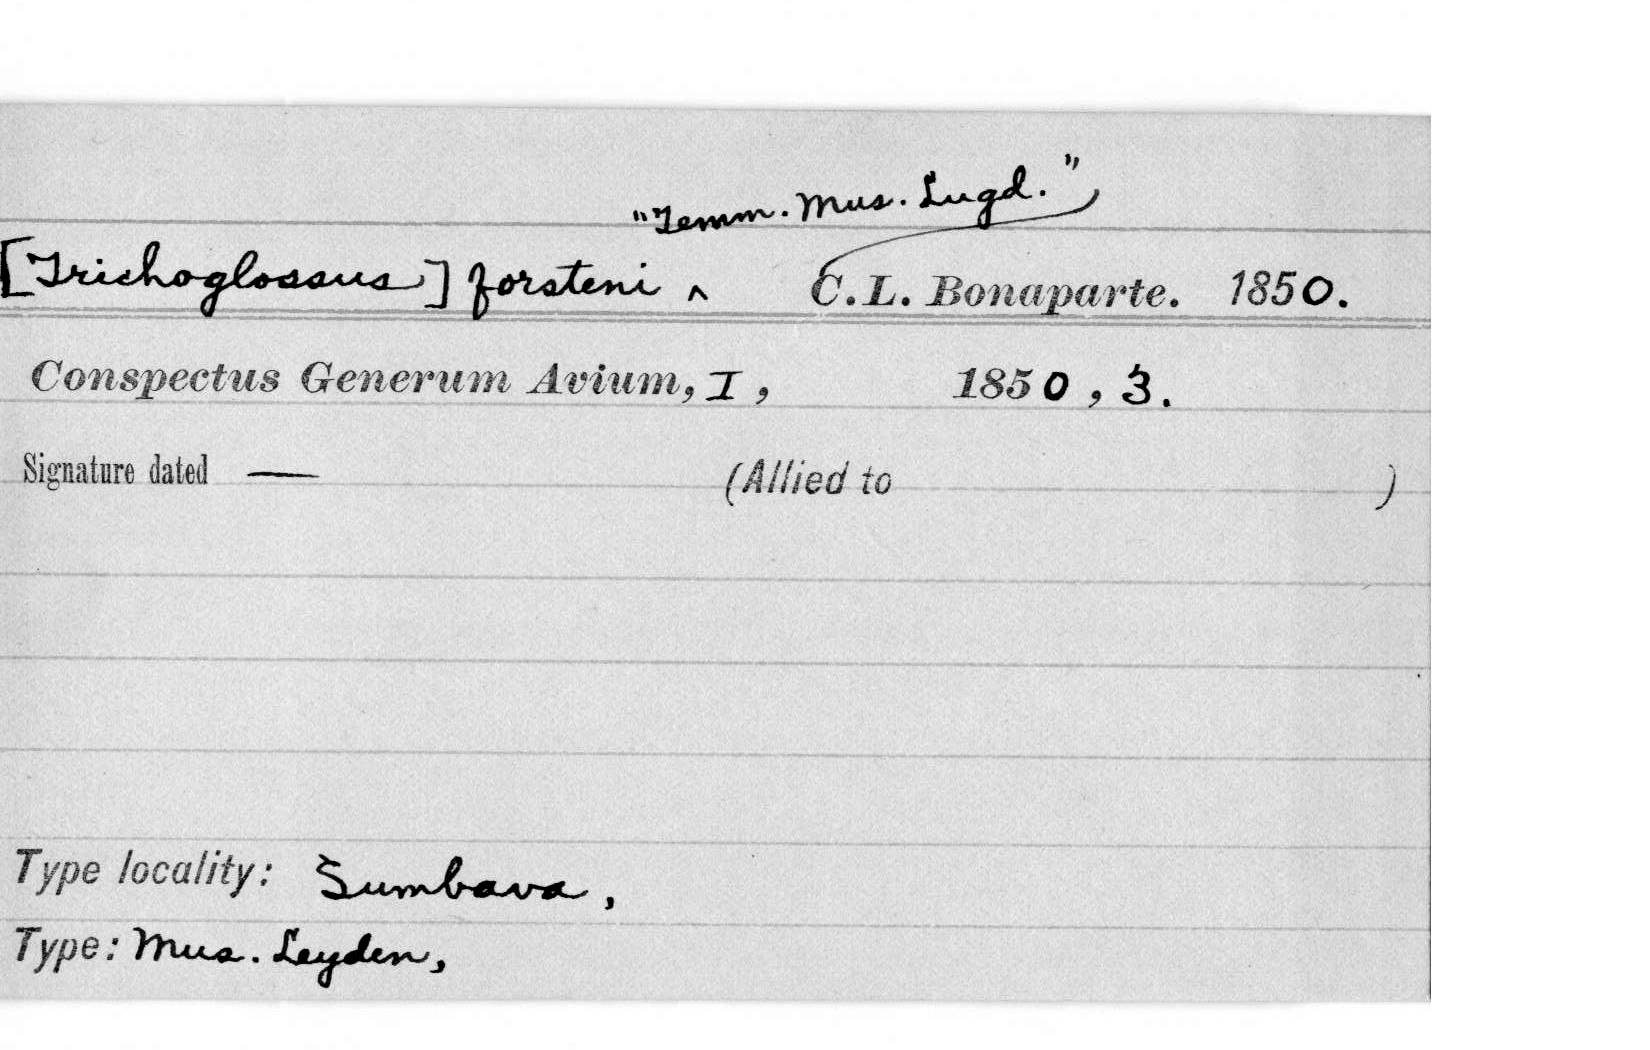 "Temm. Mus. Lugd."
[Trichoglossus] forsteni ^ C.L. Bonaparte. 1850.
Conspectus Generum Avium, I, 1850, 3.
Signature dated — (Allied to )
Type locality: Sumbava,
Type: Mus. Leyden,